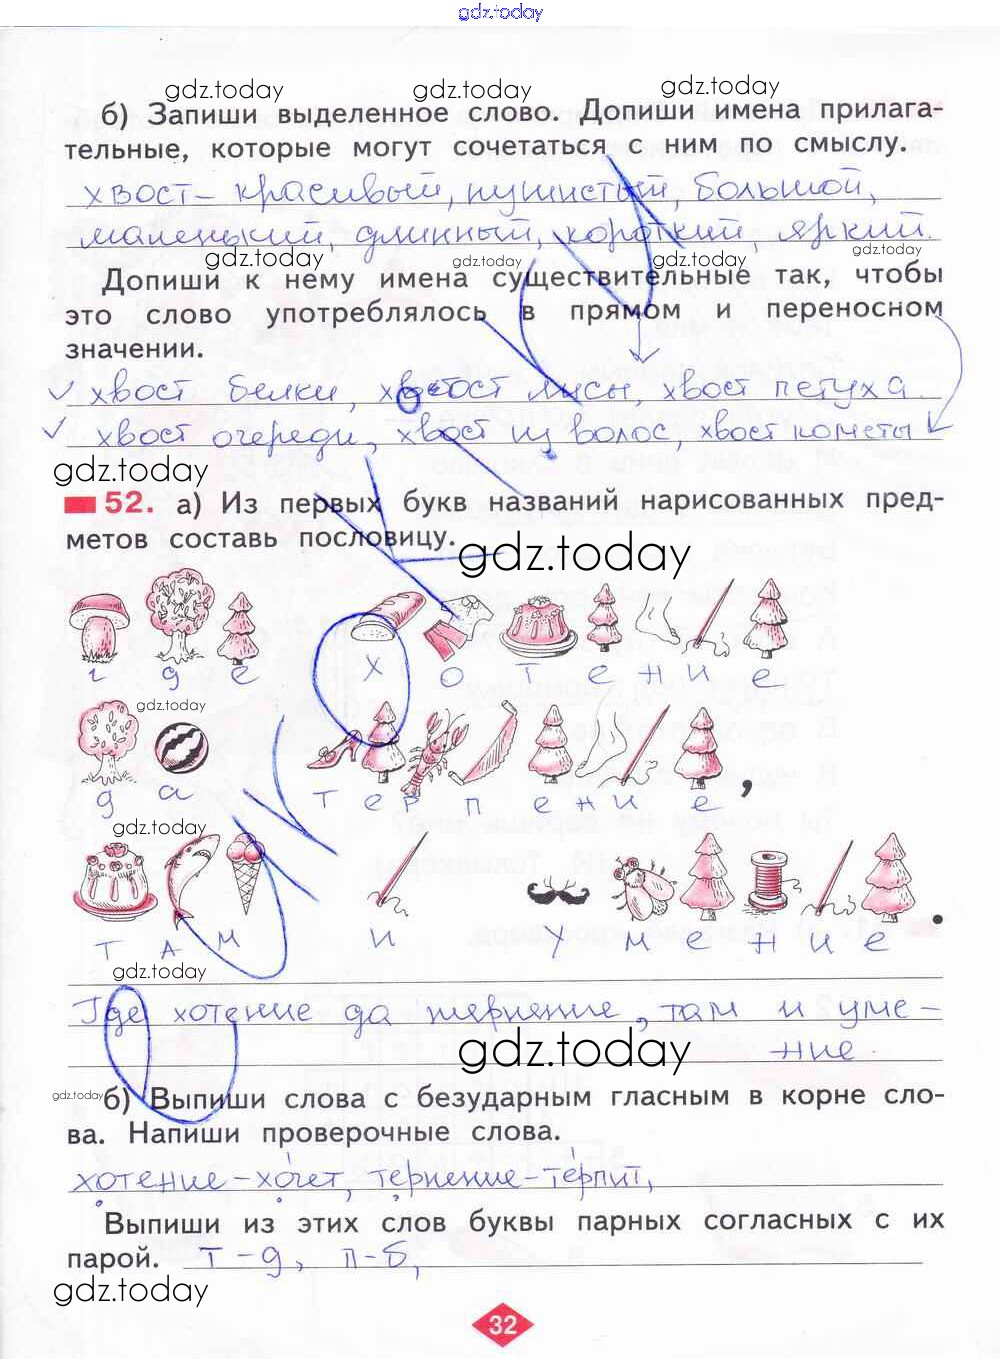 gdz.today
gdz.today gdz.today gdz.today
б) Запиши выделенное слово. Допиши имена прилага-
тельные, которые могут сочетаться с ним по смыслу.
хвост – красивый, пушистый, большой,
маленький, длинный, короткий, яркий.
gdz.today gdz.today gdz.today
Допиши к нему имена существительные так, чтобы
это слово употреблялось в прямом и переносном
значении.
хвост белки, хвост лисы, хвост петуха
хвост очереди, хвост из волос, хвост кометы
gdz.today
52. а) Из первых букв названий нарисованных пред-
метов составь пословицу.
gdz.today
г д е х о т е н и е
gdz.today
д а т е р п е н и е ,
gdz.today
т а м и у м е н и е .
gdz.today
Где хотение да терпение, там и уме-
ние.
gdz.today
gdz.today
б) Выпиши слова с безударным гласным в корне сло-
ва. Напиши проверочные слова.
хотение – хочет, терпение – терпит,
Выпиши из этих слов буквы парных согласных с их
парой. т – д, п – б,
gdz.today
32